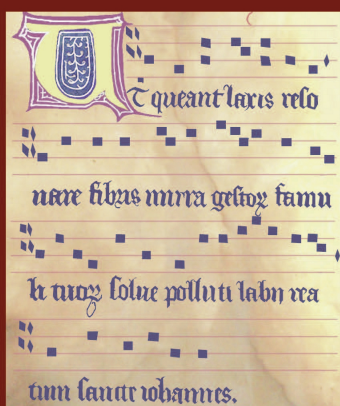 UT queant laxis reso
nare fibris mira gestoꝝ famu
li tuoꝝ solue polluti labii rea
tum sancte iohannes.